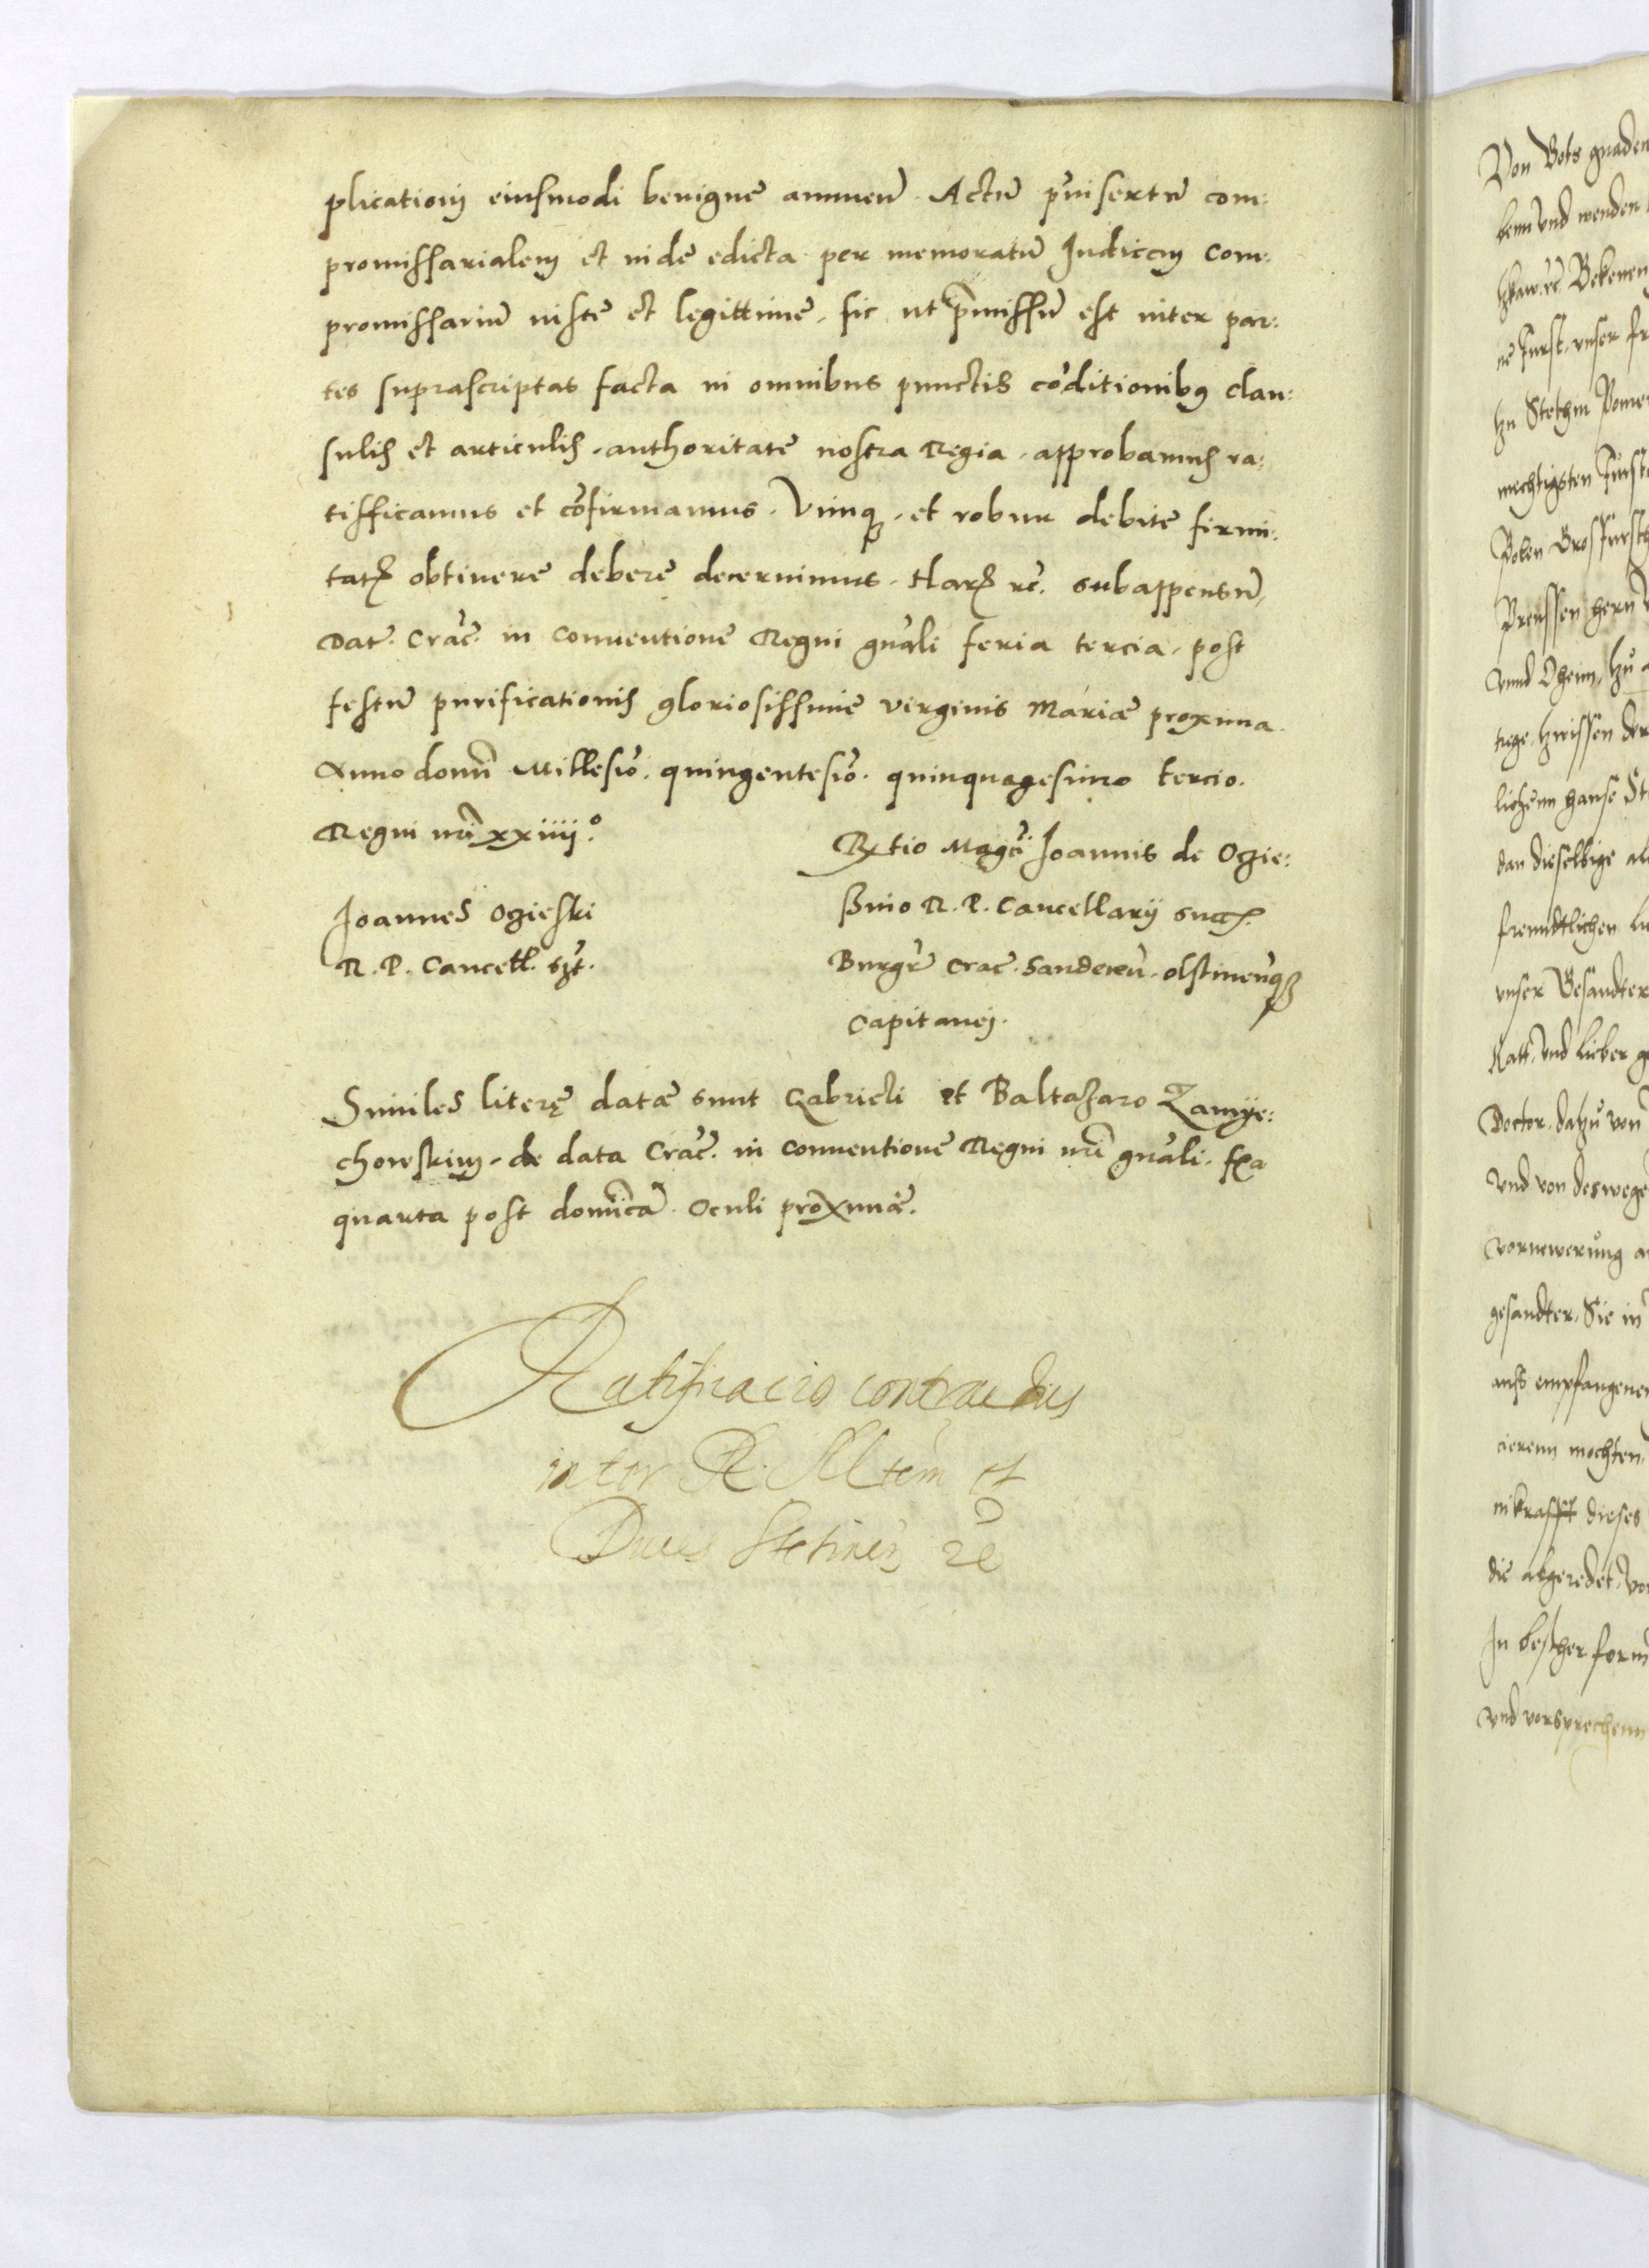 plicationj eiusmodi benigne annuen̄. Actū p̄insertū com:
promissarialem et inde edicta per memoratū Judicem com:
promissariū iuste et legittime, sic ut p̄missū est inter par:
tes suprascriptas facta in omnibus punctis cōditionibꝯ clau:
sulis et articulis, authoritate nostra Regia, approbamus ra:
tifficamus et cōfirmamus. Vimqꝫ, et robur debite firmi:
tatꝭ obtinere debere decernimus. Harꝭ rc̄. subappensū,
Dat. Crac̄. in conuentione Regni gn̄ali feria tercia, post
festū purificationis gloriosissime virginis Mariæ proxima.
Anno domī Millesīo. quingentesīo. quinquagesimo tercio.
Regni nr̄i xxiiij.º
Joannes Ogieski
R. P. Cancell. sszt.
Rꝭtio Magci. Joannis de Ogie:
ssnio R. P. Cancellarij
Burgr̄ Crac. Sandecen̄. olstinen̄qꝫ
Capitanej.
Similes literę datæ sunt Gabrieli et Baltazaro Zamye:
chowskim, de data Crac̄. in conuentione Regni nr̄i gn̄ali. fꝭa
quarta post domīcā. Oculi proximā.
Ratificacio contractus
inter R. Mtem et
Duces Stetinen̄ rc̄
Von Gots gnaden
benn vnd wenden
Bekenen
ne Furst, vnser fr
hn Stethin Pomer
mechtigsten Furst
Polen Grosfurst
Preussen hern
vnnd Ohem, hzu
tege, hzwissen der
lichenn hanse St
dan dieselbige al
freundtlichen li
vnser Gesandter
Ratt, vnd lieber g
Doctor, dahzu von
vnd von deswege
vornewerung a
gesandter, Sie in
auss empfangenen
cierenn mochten,
inkrafft dieses
die abgeredet, vo
In bester form
vnd vorsprechenn